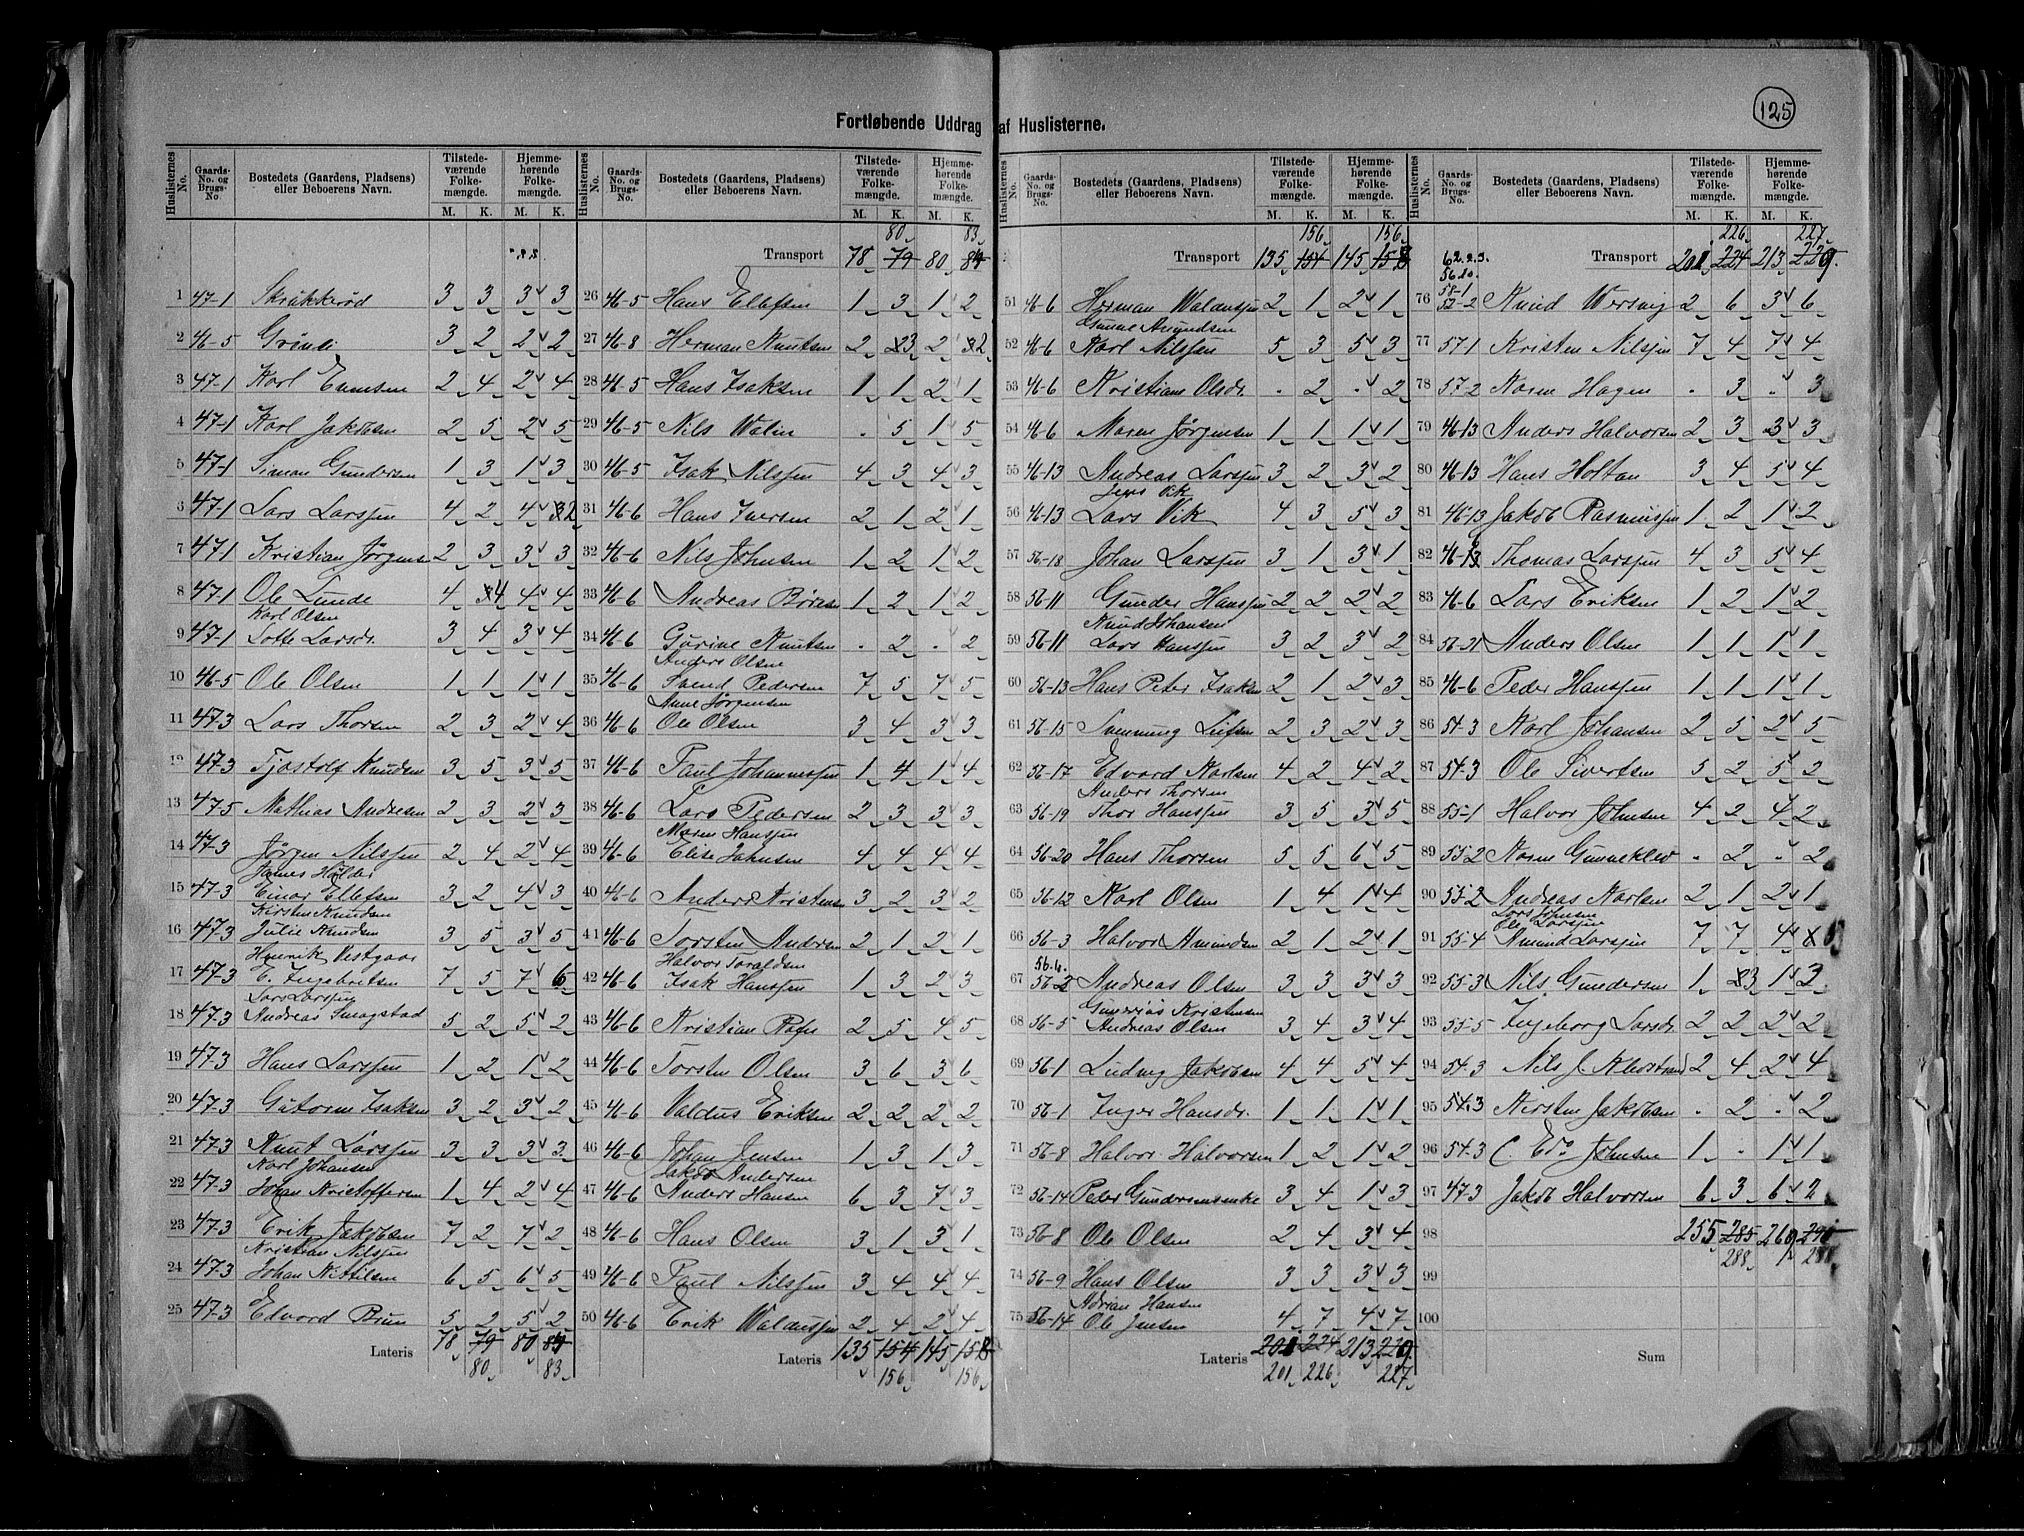 125
Fortløbende Uddrag af Huslisterne.
Huslisternes No.
Gaards-No. og Brugs-No.
Bostedets (Gaardens, Pladsens) eller Beboerens Navn.
Tilstedeværende Folkemængde.
Hjemmehørende Folkemængde.
M. K. M. K.
1 47-1 Skråkkerød 3 3 3 3
2 46-5 Grini 3 2 2 2
3 47-1 Karl Evensen 2 4 2 4
4 47-1 Karl Jakobsen 2 5 2 5
5 47-1 Siman Gundersen 1 3 1 3
6 47-1 Lars Larssen 4 2 4 2
7 47-1 Kristian Jørgensen 2 3 3 3
8 47-1 Ole Lunde 4 4 4 4
Karl Olsen
9 47-1 Lotte Larsdr. 3 4 3 4
10 46-5 Ole Olsen 1 1 1 1
11 47-3 Lars Thorsen 2 3 2 4
12 47-3 Tjøstolf Knudsen 3 5 3 5
13 47-5 Mathias Andresen 2 3 2 3
14 47-3 Jørgen Nilssen 2 4 2 4
James Holder
15 47-3 Einar Ellefsen 3 2 4 3
Kirsten Knudsen
16 47-3 Julie Knudsen 3 5 3 5
Henrik Vestgaar
17 47-3 E. Ingebretsen 7 5 7 6
Lars Larssen
18 47-3 Andreas Smagstad 5 2 5 2
19 47-3 Hans Larssen 1 2 1 2
20 47-3 Gutorm Isaksen 3 2 3 2
21 47-3 Knut Larssen 3 3 3 3
Karl Johansen
22 47-3 Johan Kristoffersen 1 4 2 4
23 47-3 Erik Jakobsen 7 2 7 2
Kristian Nilssen
24 47-3 Johan Kittilsen 6 5 6 5
25 47-3 Edvard Bruu 5 2 5 2
Lateris 78 79 80 84
80 83
80 83
Transport 78 79 80 84
26 46-5 Hans Ellefsen 1 3 1 2
27 46-8 Herman Knutsen 2 3 2 2
28 46-5 Hans Isaksen 1 1 2 1
29 46-5 Nils Walin . 5 1 5
30 46-5 Isak Nilssen 4 3 4 3
31 46-6 Hans Iversen 2 1 2 1
32 46-6 Nils Johnsen 1 2 1 2
33 46-6 Andreas Børesen 1 2 1 2
34 46-6 Gurine Knutsen . 2 . 2
Anders Olsen
35 46-6 Svend Pedersen 7 5 7 5
Anne Jørgensen
36 46-6 Ole Olsen 3 4 3 3
37 46-6 Paul Johannessen 1 4 1 4
38 46-6 Lars Pedersen 2 3 3 3
Maren Hanssen
39 46-6 Elise Johnsen 4 4 4 4
40 46-6 Anders Kristensen 3 2 3 2
41 46-6 Torsten Andersen 2 1 2 1
Halvor Taraldsen
42 46-6 Isak Hanssen 1 3 2 3
43 46-6 Kristian Rafn 2 5 4 5
44 46-6 Torsten Olsen 3 6 3 6
45 46-6 Valdus Eriksen 2 2 2 2
46 46-6 Johan Jensen 1 3 1 3
Jakob Andersen
47 46-6 Anders Hansen 6 3 7 3
48 46-6 Hans Olsen 3 1 3 1
49 46-6 Paul Nilssen 3 4 4 4
50 46-6 Erik Waldussen 2 4 2 4
Lateris 135 154 145 158
156 156
156 156
Transport 135 154 145 158
51 46-6 Herman Waldussen 2 1 2 1
Gunne Amundsen
52 46-6 Karl Nilssen 5 3 5 3
53 46-6 Kristiane Olsdr. . 2 . 2
54 46-6 Maren Jørgensen 1 1 1 1
55 46-13 Andreas Larssen 3 2 3 2
Jens Vik
56 46-13 Lars Vik 4 3 5 3
57 56-18 Johan Larssen 3 1 3 1
58 56-11 Gunder Hanssen 2 2 2 2
Knud Johansen
59 56-11 Lars Hanssen 3 2 3 2
60 56-13 Hans Peter Isaksen 2 1 2 3
61 56-15 Svenning Leifsen 2 3 2 3
62 56-17 Edvard Karlsen 4 2 4 2
Anders Thorsen
63 56-19 Thor Hanssen 3 5 3 5
64 56-20 Hans Thorsen 5 5 6 5
65 56-12 Karl Olsen 1 4 1 4
66 56-3 Halvor Amundsen 2 1 2 1
56-4.
67 56-2 Andreas Olsen 3 3 3 3
Kristensen
68 56-5 Andreas Olsen 3 4 3 4
69 56-1 Ludvig Jakobsen 4 4 5 4
70 56-1 Inger Hansdr. 1 1 1 1
71 56-8 Halvor Halvorsen 1 2 1 2
72 56-14 Peder 3 4 1 3
73 56-8 Ole Olsen 2 4 3 4
74 56-9 Hans Olsen 3 3 3 3
Adrian Hansen
75 56-14 Ole Jensen 4 7 4 7
Lateris 201 224 213 229
201 226 227
226 227
62.2.3.
56.10.
Transport 201 224 213 229
58-1
76 52-2 Knud Wersvig 2 6 3 6
77 57-1 Kristen Nilssen 7 4 7 4
78 57-2 Karen Hagen . 3 . 3
79 46-13 Anders Halvorsen 2 3 3 3
80 46-13 Hans Holtan 3 4 5 4
81 46-13 Jakob Rasmussen 1 2 1 2
82 46-6 Thomas Larssen 4 3 5 4
83 46-6 Lars Eriksen 1 2 1 2
84 56-21 Anders Olsen 1 1 1 1
85 46-6 Peder Hanssen 1 1 1 1
86 54-3 Karl Johansen 2 5 2 5
87 54-3 Ole Sivertsen 5 2 5 2
88 55-1 Halvor Johnsen 4 2 4 2
89 55-2 Karen Gunneklev . 2 . 2
90 55-2 Andreas Karlsen 2 1 2 1
Lars Johnsen
Ole Larssen
91 55-4 Amund Larssen 7 7 4
92 55-3 Nils Gundersen 1 3 1 3
93 55-5 Ingeborg Larsdr. 2 2 2 2
94 54-3 Nils J. 2 4 2 4
95 54-3 Kirsten Jakobsen . 2 . 2
96 54-3 C. Edv. Johnsen 1 . 1 1
97 47-3 Jakob Halvorsen 6 3 6 2
98 255 285 260 290
288 288
99
100
Sum